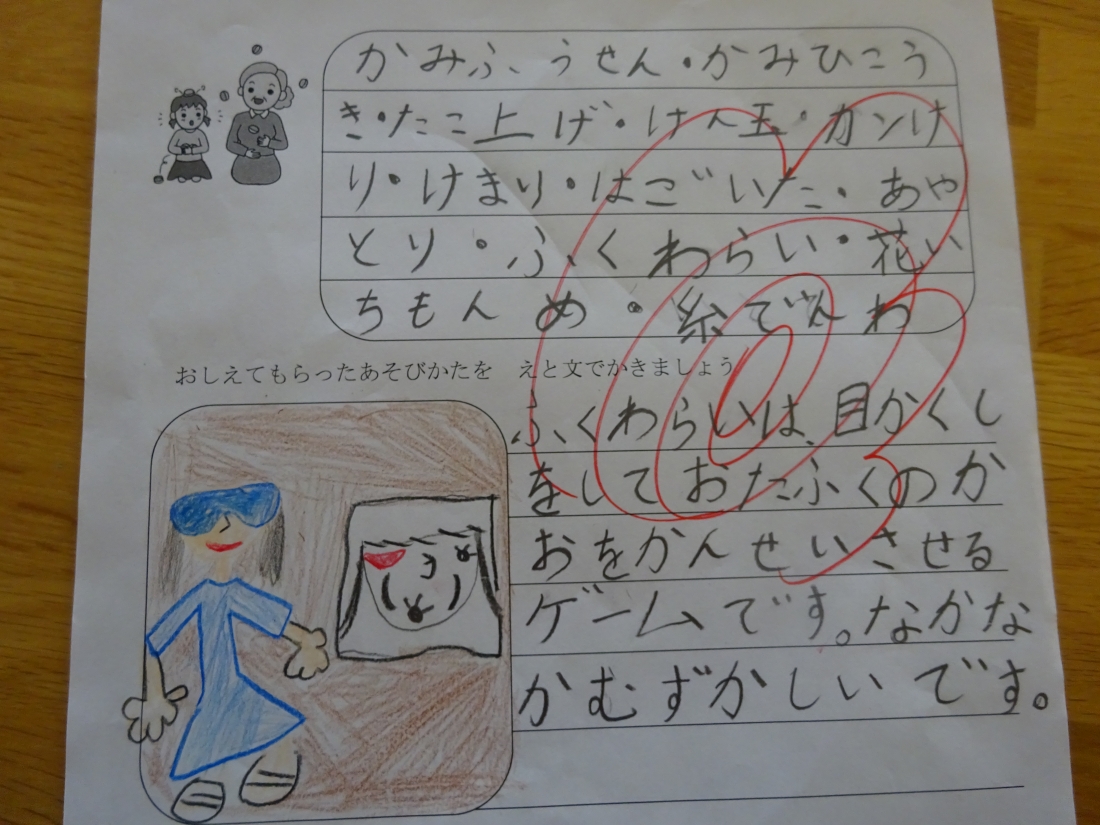 かみふうせん・かみひこう
き・たこ上げ・けん玉・カンけ
り・けまり・はごいた・あや
とり・ふくわらい・花い
ちもんめ・糸でんわ
おしえてもらったあそびかたを　えと文でかきましょう
ふくわらいは、目かくし
をしておたふくのか
おをかんせいさせる
ゲームです。なかな
かむずかしいです。